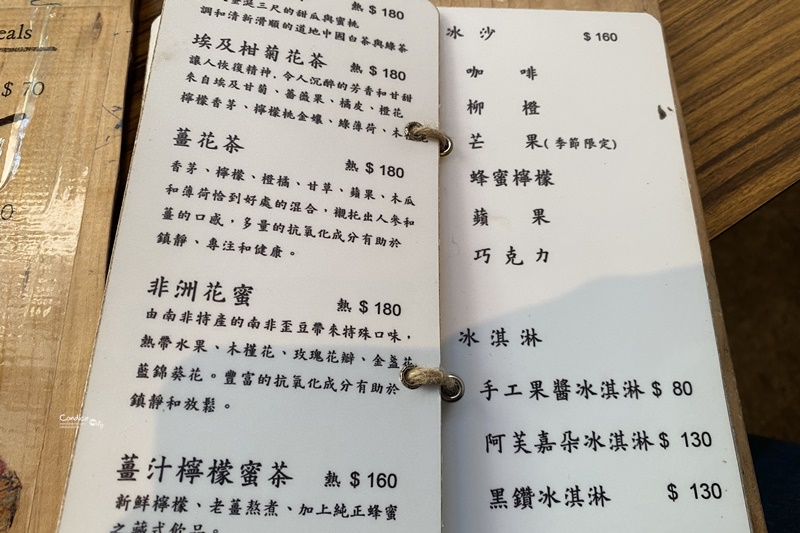 eals
$ 70
0
熱 $ 180
三尺的甜瓜與蜜桃
調和清新滑順的道地中國白茶與綠茶
埃及柑菊花茶 熱 $ 180
讓人恢復精神,令人沉醉的芳香和甘甜
來自埃及甘菊、薔薇果、橘皮、橙花
檸檬香茅、檸檬桃金孃、綠薄荷、木
薑花茶
熱 $ 180
香茅、檸檬、橙橘、甘草、蘋果、木瓜
和薄荷恰到好處的混合,襯托出人參和
薑的口感,多量的抗氧化成分有助於
鎮靜、專注和健康。
非洲花蜜 熱 $ 180
由南非特產的南非歪豆帶來特殊口味,
熱帶水果、木槿花、玫瑰花瓣、金盞花
藍錦葵花。豐富的抗氧化成分有助於
鎮靜和放鬆。
薑汁檸檬蜜茶 熱 $ 160
新鮮檸檬、老薑熬煮、加上純正蜂蜜
之藏式飲品。
冰沙 $ 160
咖啡
柳橙
芒果(季節限定)
蜂蜜檸檬
蘋果
巧克力
冰淇淋
手工果醬冰淇淋 $ 80
阿芙嘉朵冰淇淋 $ 130
黑鑽冰淇淋 $ 130
Candice